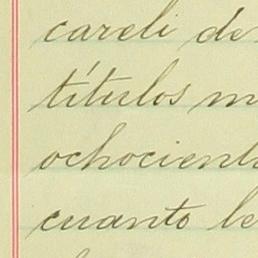 careli de
títulos m
ochocient
cuanto le